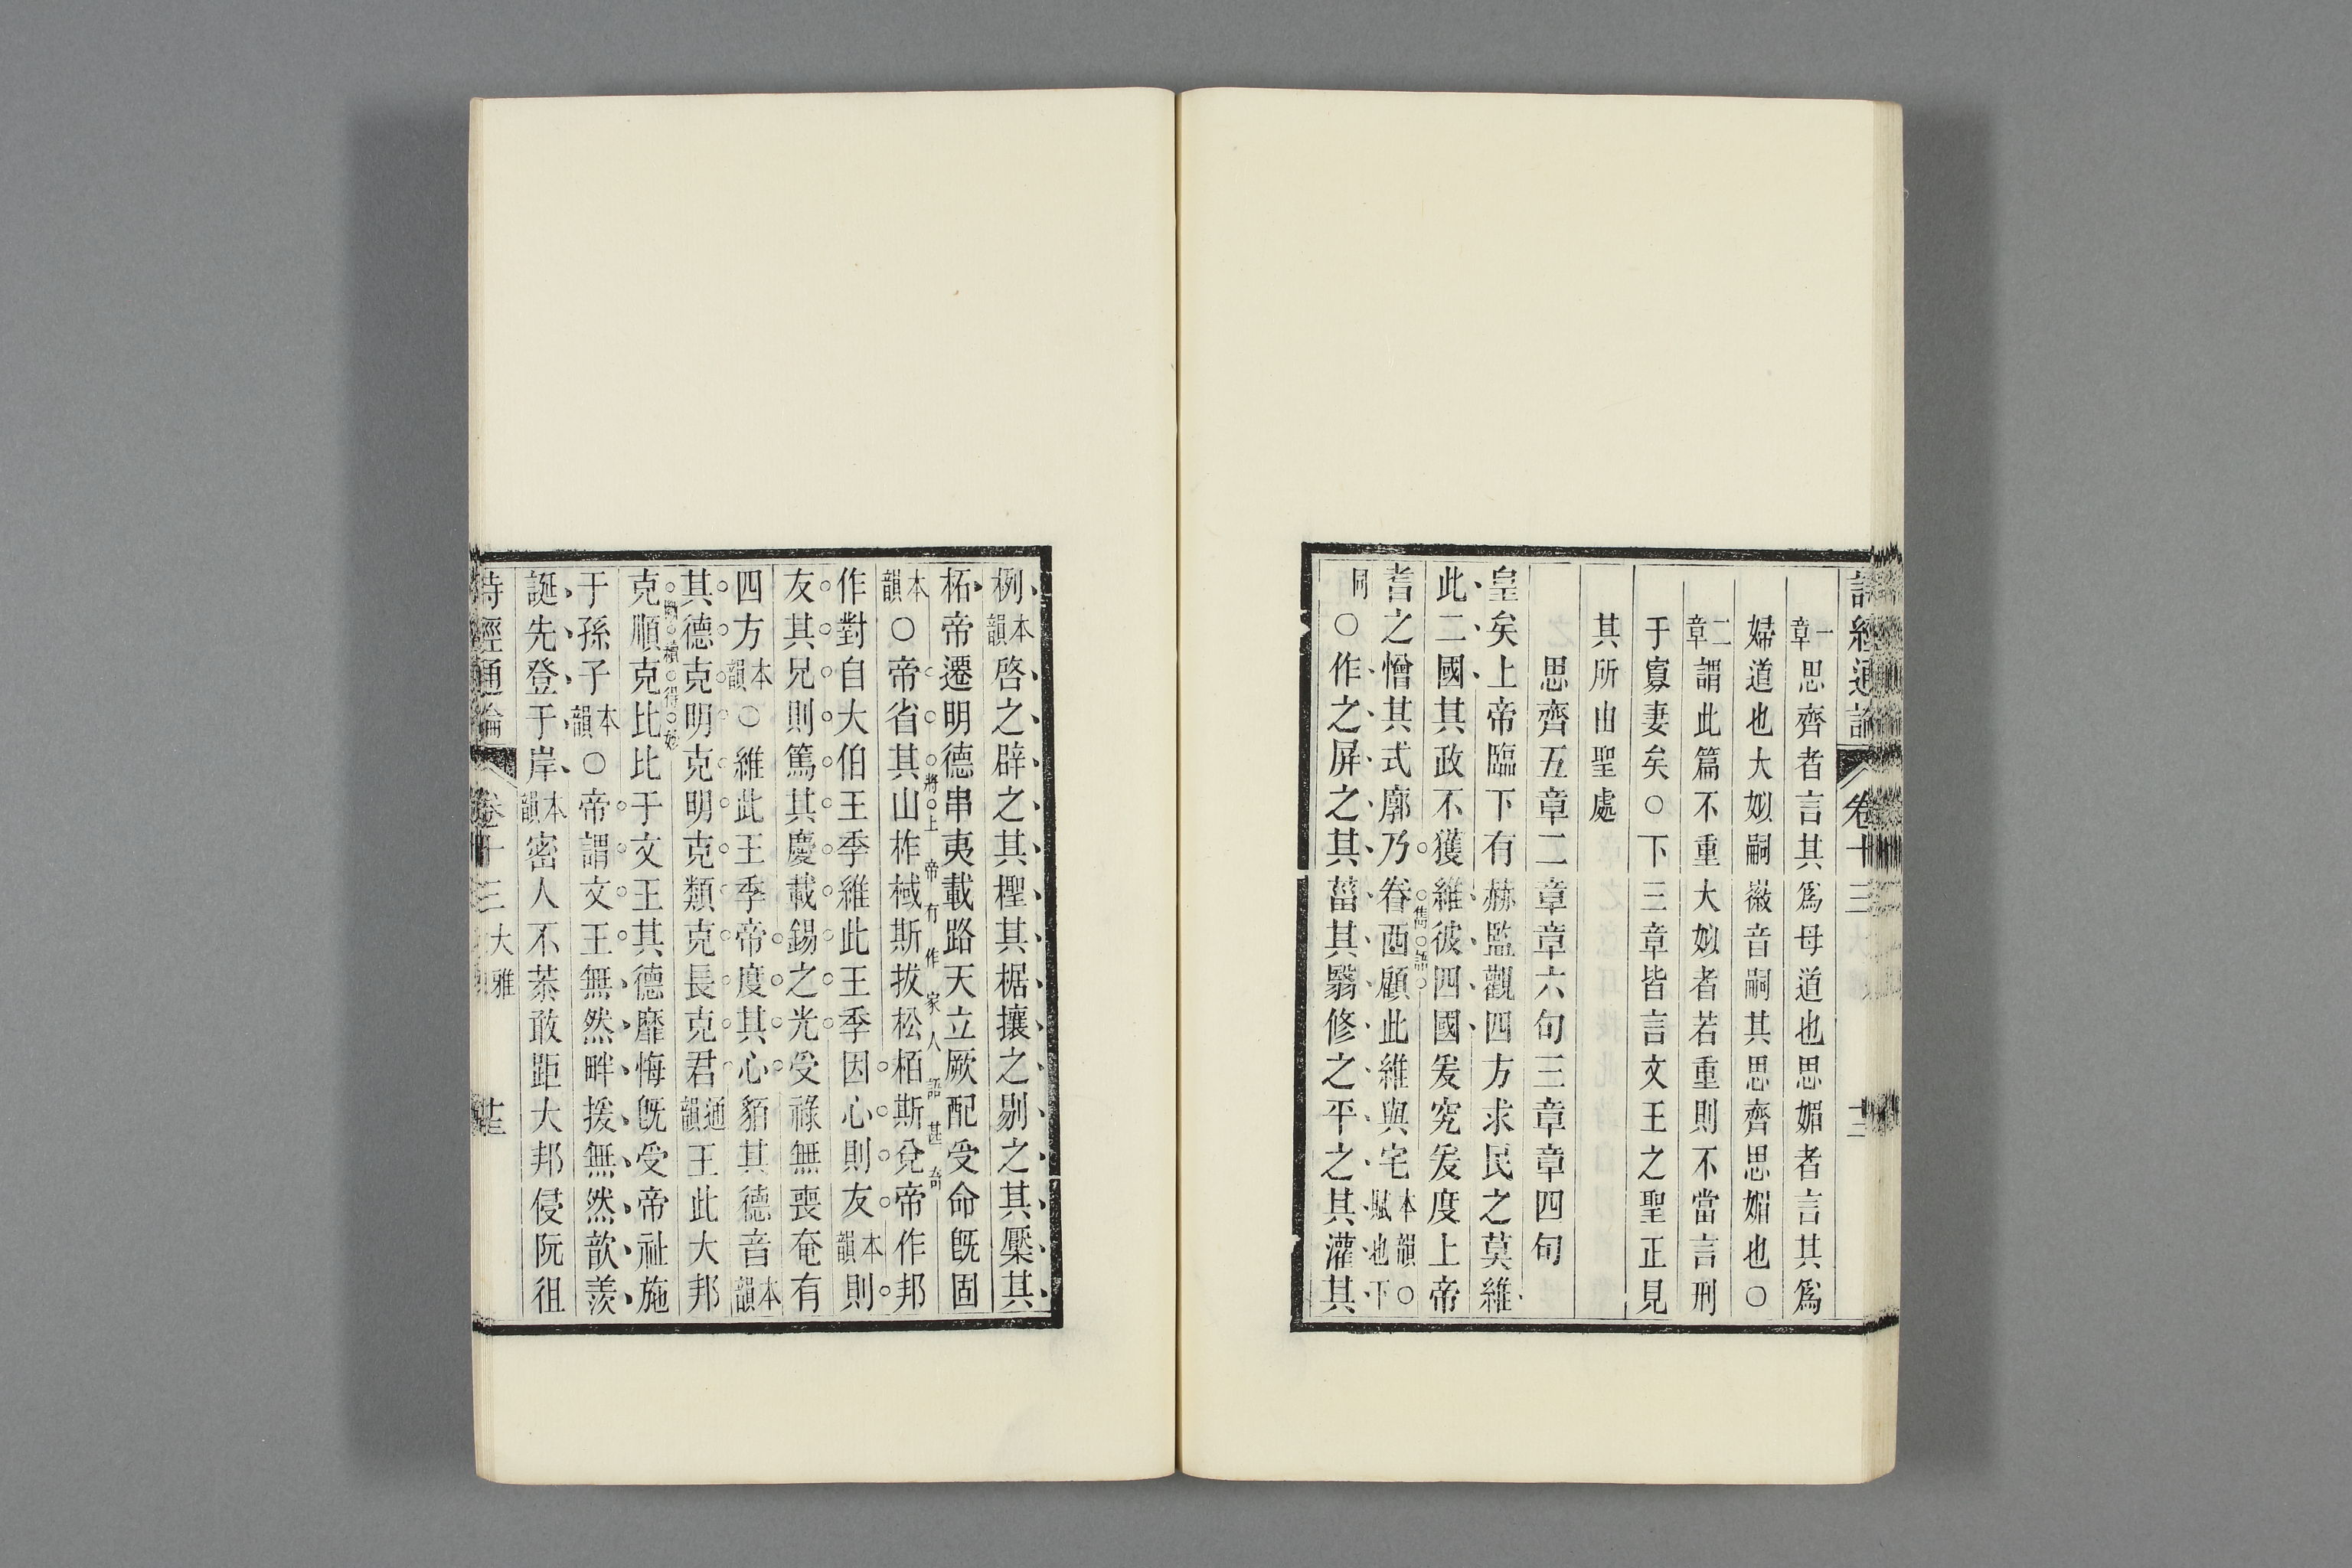 詩經通論 卷十三 十三
一章思齊者言其爲母道也思媚者言其爲
婦道也大姒嗣徽音嗣其思齊思媚也○
二章謂此篇不重大姒者若重則不當言刑
于寡妻矣○下三章皆言文王之聖正見
其所由聖處
思齊五章二章章六句三章章四句
皇矣上帝臨下有赫監觀四方求民之莫維
此二國其政不獲維彼四國爰究爰度上帝
耆之憎其式廓乃眷西顧此維與宅本韻○賦也下
雋語
同○作之屏之其菑其翳修之平之其灌其
栵本韻啓之辟之其檉其椐攘之剔之其壓其
柘帝遷明德串夷載路天立厥配受命旣固
將上帝有作家人語甚奇
本韻○帝省其山柞棫斯拔松栢斯兌帝作邦
作對自大伯王季維此王季因心則友本韻則
友其兄則篤其慶載錫之光受祿無喪奄有
四方本韻○維此王季帝度其心貊其德音本韻
其德克明克明克類克長克君通韻王此大邦
克順克比比于文王其德靡悔旣受帝祉施
于孫子本韻○帝謂文王無然畔援無然歆羨
誕先登于岸本韻密人不恭敢距大邦侵阮徂
詩經通論 卷十三 大雅